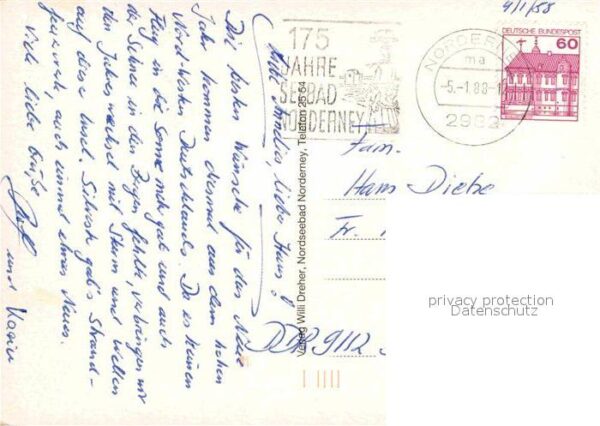 Liebe Annelies, lieber Hans!
Die besten Wünsche für das Neue
Jahr kommen diesmal aus dem hohen
Nord-Westen Deutschlands. Da es keinen
in die Sonne mehr gab und auch
der Schnee in den Bergen fehlte, verbringen wir
den Jahreswechsel mit Sturm und Wellen
auf diese Insel. Silvester gab's Strand-
feuerwerk, auch einmal etwas Neues.
Viele liebe Grüße
und
Verlag Willi Dreher, Nordseebad Norderney, Telefon 25 64
175
JAHRE
SEEBAD
NORDERNEY
NORDERNEY
ma
-5.-1.88-1
2982
4/1/58
DEUTSCHE BUNDESPOST
60
Fam.
Hans Dietze
Fr.
DDR 9112
privacy protection
Datenschutz